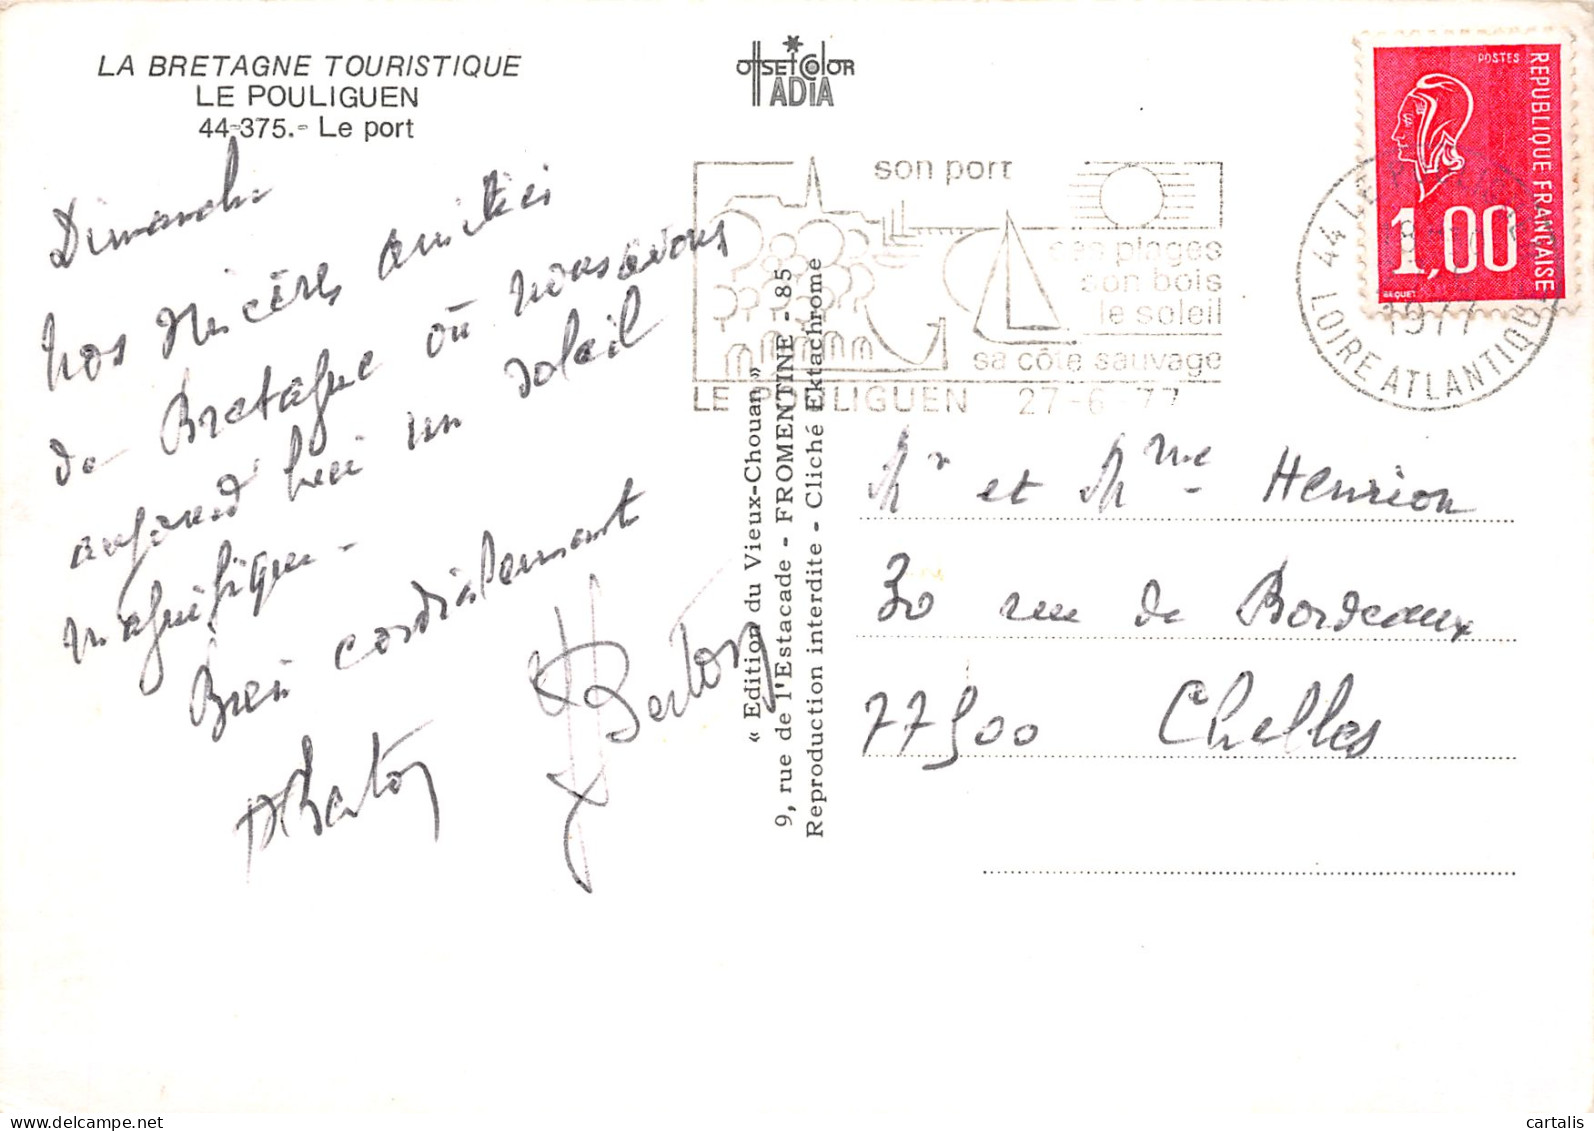 LA BRETAGNE TOURISTIQUE
LE POULIGUEN
44-375.- Le port
OFFSET COLOR
ADIA
Dimanche
Nos sincères amitiés
de Bretagne où nous avons
aujourd'hui un soleil
magnifique -
Bien cordialement
Berton
Berton
« Edition du Vieux-Chouan »
9, rue de l'Estacade - FROMENTINE - 85
Reproduction interdite - Cliché Ektachrome
son port
ses plages
son bois
le soleil
sa côte sauvage
LE POULIGUEN 27-6-77
44 LE
1977
LOIRE ATLANTIQUE
POSTES
REPUBLIQUE FRANÇAISE
1,00
BEQUET
Mr et Mme Henrion
30 rue de Bordeaux
77500 Chelles
cartalis
delcampe.net